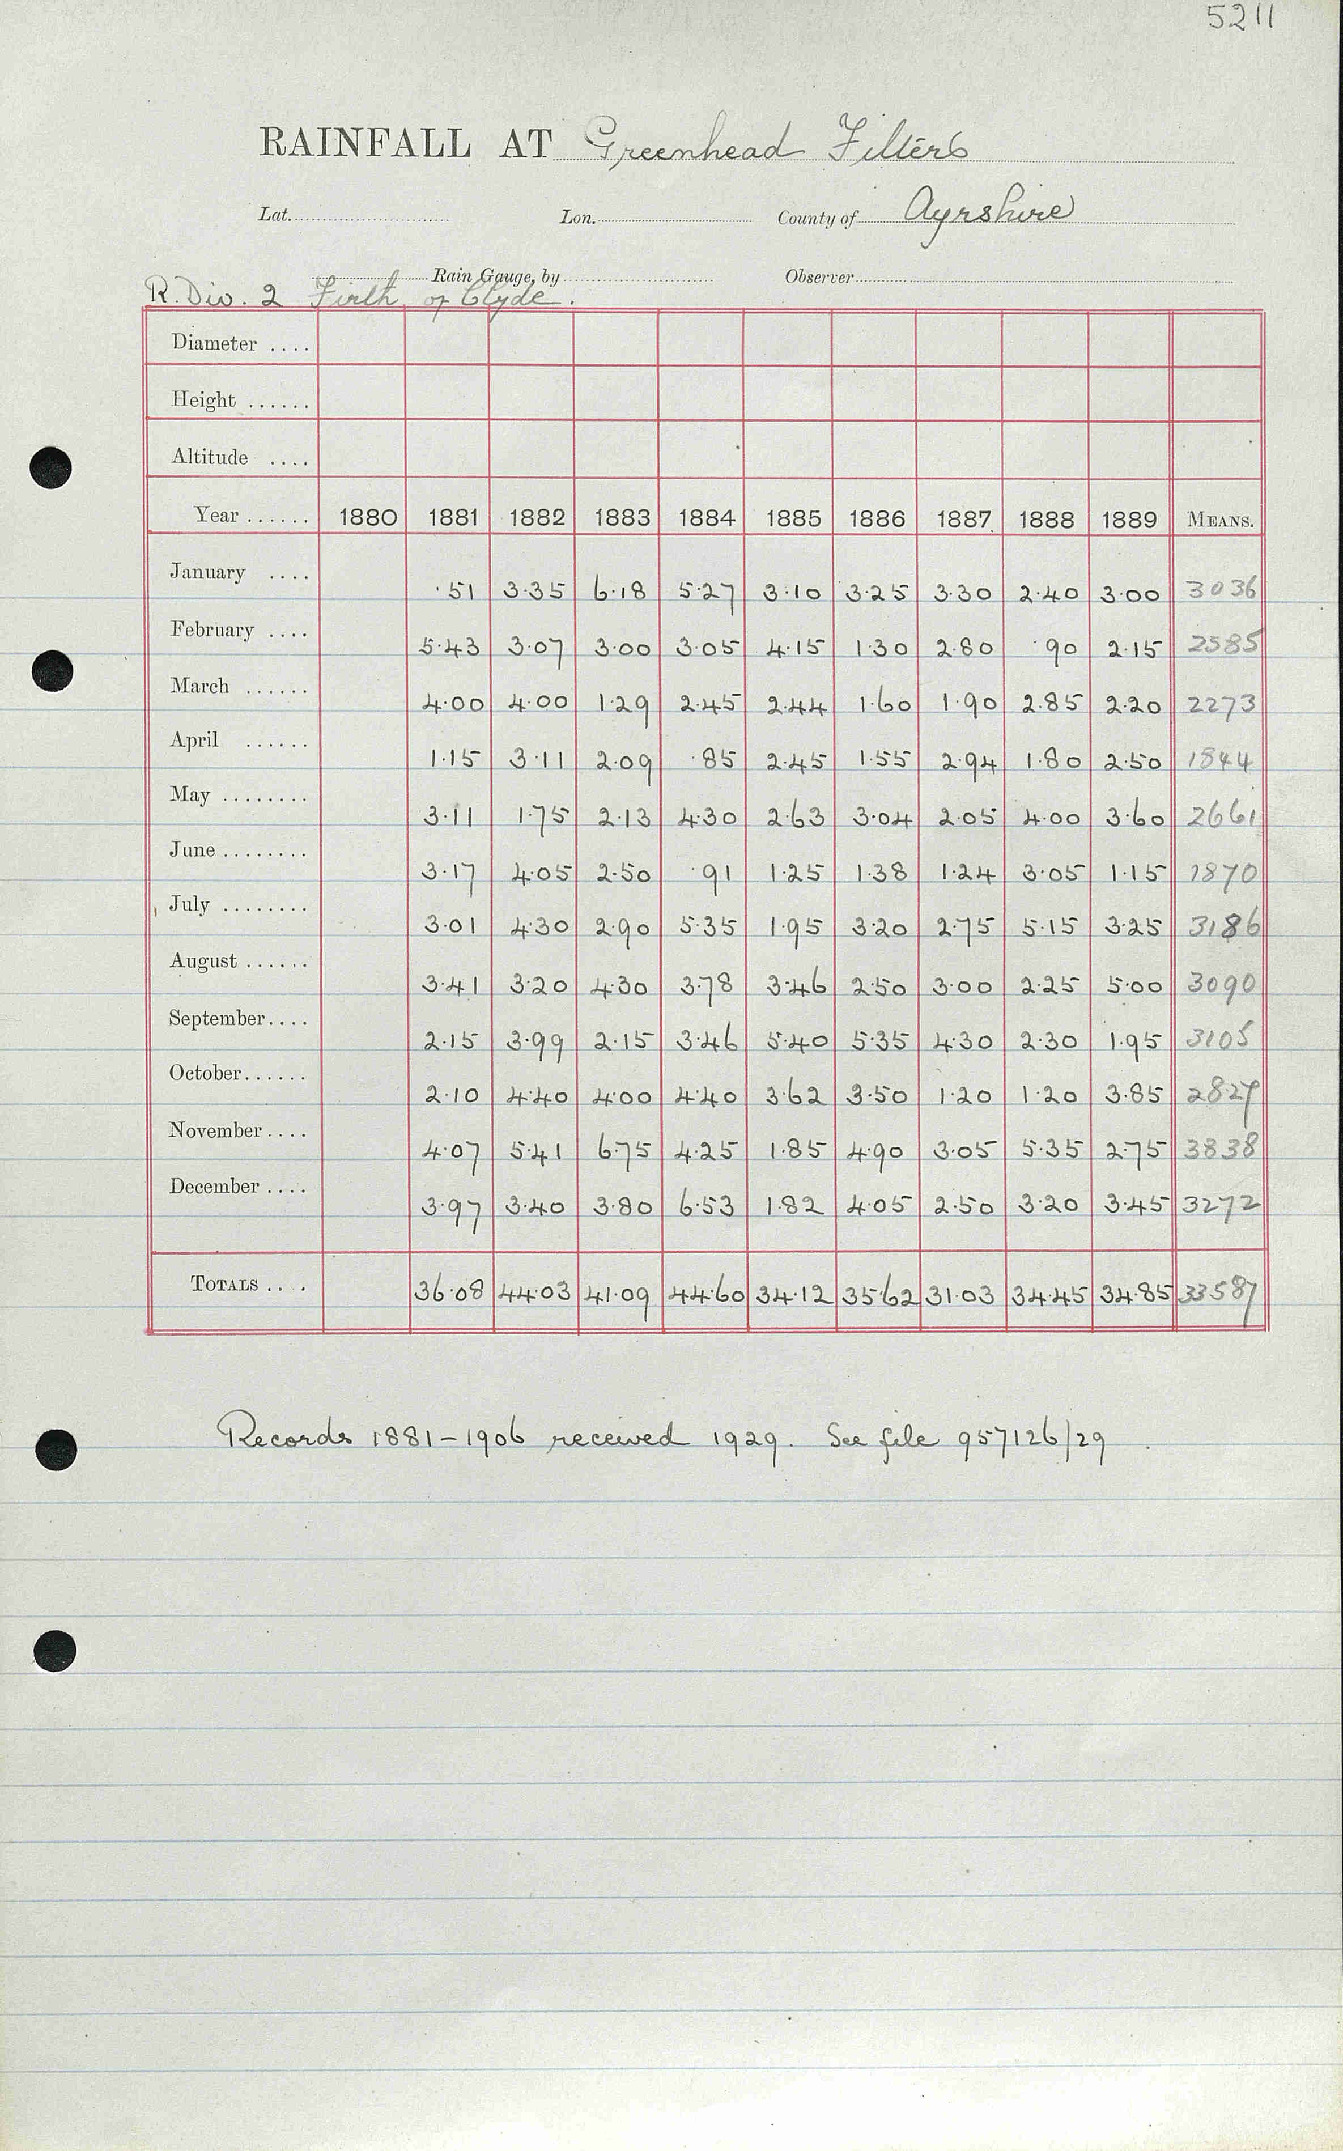 5211
RAINFALL AT Greenhead Filters
Lat. Lon. County of Ayrshire
Rain Gauge, by Observer
R. Div. 2 Firth of Clyde.
Diameter ....
Height ......
Altitude ....
Year ...... 1880 1881 1882 1883 1884 1885 1886 1887 1888 1889 MEANS.
January .... ·51 3·35 6·18 5·27 3·10 3·25 3·30 2·40 3·00 3036
February .... 5·43 3·07 3·00 3·05 4·15 1·30 2·80 ·90 2·15 2585
March ...... 4·00 4·00 1·29 2·45 2·44 1·60 1·90 2·85 2·20 2273
April ...... 1·15 3·11 2·09 ·85 2·45 1·55 2·94 1·80 2·50 1844
May ........ 3·11 1·75 2·13 4·30 2·63 3·04 2·05 4·00 3·60 2661
June ........ 3·17 4·05 2·50 ·91 1·25 1·38 1·24 3·05 1·15 1870
July ........ 3·01 4·30 2·90 5·35 1·95 3·20 2·75 5·15 3·25 3186
August ...... 3·41 3·20 4·30 3·78 3·46 2·50 3·00 2·25 5·00 3090
September.... 2·15 3·99 2·15 3·46 5·40 5·35 4·30 2·30 1·95 3105
October...... 2·10 4·40 4·00 4·40 3·62 3·50 1·20 1·20 3·85 2827
November .... 4·07 5·41 6·75 4·25 1·85 4·90 3·05 5·35 2·75 3838
December .... 3·97 3·40 3·80 6·53 1·82 4·05 2·50 3·20 3·45 3272
TOTALS .... 36·08 44·03 41·09 44·60 34·12 35·62 31·03 34·45 34·85 33587
Records 1881-1906 received 1929. See file 957126/29